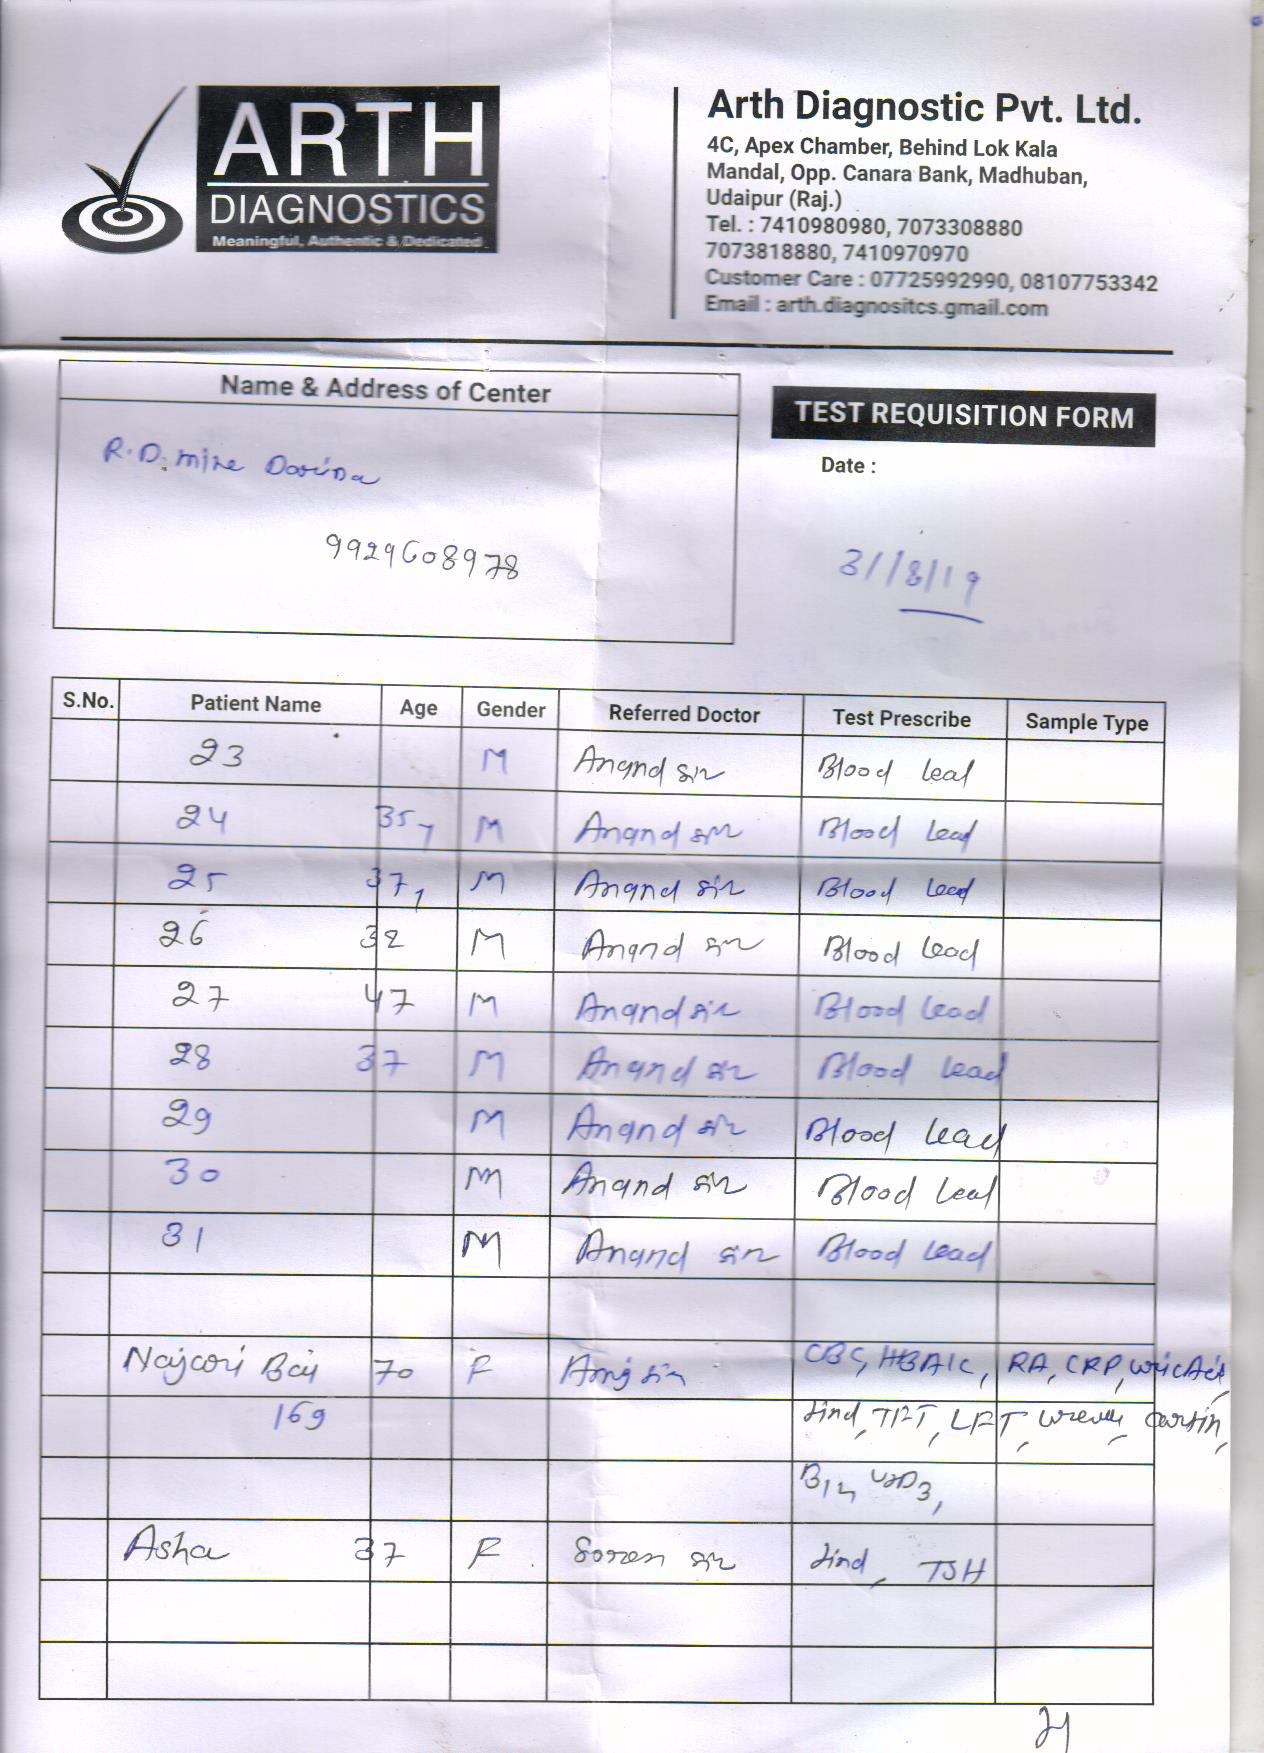 ARTH
DIAGNOSTICS
Meaningful, Authentic & Dedicated
Arth Diagnostic Pvt. Ltd.
4C, Apex Chamber, Behind Lok Kala
Mandal, Opp. Canara Bank, Madhuban,
Udaipur (Raj.)
Tel. : 7410980980, 7073308880
7073818880, 7410970970
Customer Care : 07725992990, 08107753342
Email : arth.diagnositcs.gmail.com
Name & Address of Center
R.D. mine
9929608978
TEST REQUISITION FORM
Date :
31/8/19
S.No. Patient Name Age Gender Referred Doctor Test Prescribe Sample Type
23 M Anand sir Blood lead
24 35 M Anand sir Blood lead
25 37 M Anand sir Blood lead
26 32 M Anand sir Blood lead
27 47 M Anand sir Blood lead
28 37 M Anand sir Blood lead
29 M Anand sir Blood lead
30 M Anand sir Blood lead
31 M Anand sir Blood lead
70 F sir CBC, HBA1C, RA, CRP, uric Acid,
169 TFT, LFT,
B12, VD3,
Asha 37 F sir TSH